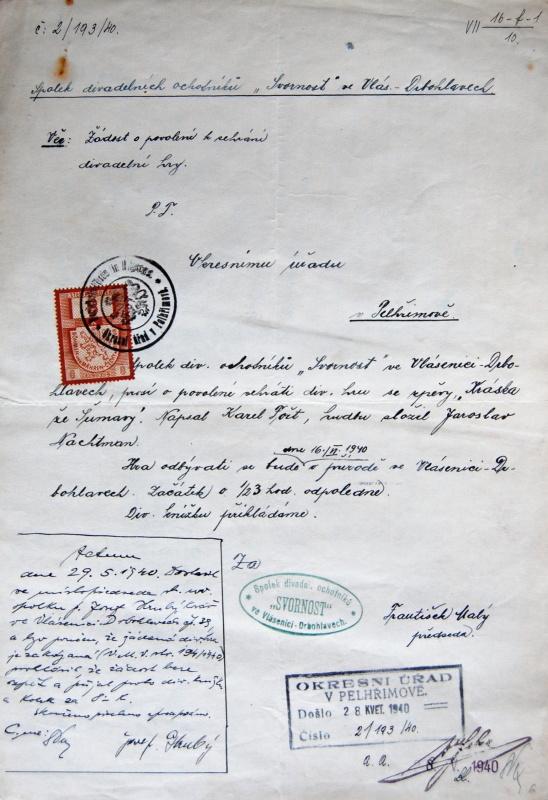 č: 2/193/40.
VII 16-f-1
10.
Spolek divadelních ochotníků „Svornost" ve Vlás.-Drbohlavech
Věc: Žádost o povolení k sehrání
divadelní hry.
P.T.
Okresnímu úřadu
v Pelhřimově.
Spolek div. ochotníků „Svornost" ve Vlásenici-Drbo-
hlavech, prosí o povolení sehráti div. hru se zpěvy „Kráska
ze Šumavy". Napsal Karel Fořt, hudbu složil Jaroslav
Nachtman.
dne 16./VI. 1940
Hra odbývati se bude v přírodě ve Vlásenici-Dr-
bohlavech. Začátek o 1/23 hod. odpoledne.
Div. knížku přikládáme.
Za
Spolek divadel. ochotníků
„SVORNOST"
ve Vlásenici-Drbohlavech.
František Malý
předseda.
Actum
dne 29.5.1940. Dostavil
se místopředseda
spolku p. Josef Hrubý
ve Vlásenici Drbohlavech čp. 28,
a byv
je zakázaná
prohlásil, že žádost bere
zpět a přijal
a kolek za
Josef Hrubý
OKRESNÍ ÚŘAD
V PELHŘIMOVĚ.
Došlo 28 KVĚT. 1940
Číslo 2/193/40.
a. a.
8 1940